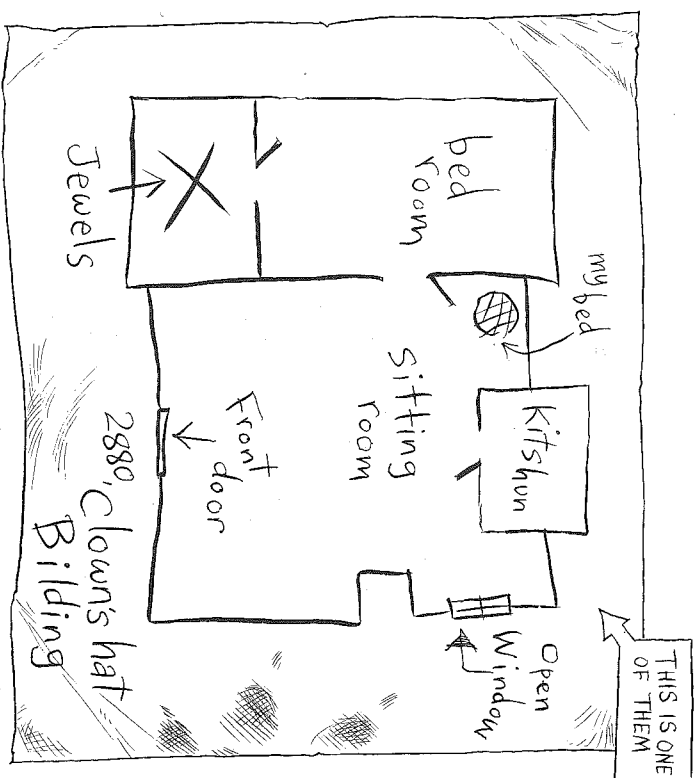 THIS IS ONE
OF THEM
my bed
Kitshun
Open
Window
bed
room
Sitting
room
Front
door
Jewels
2880, Clown's hat
Bilding